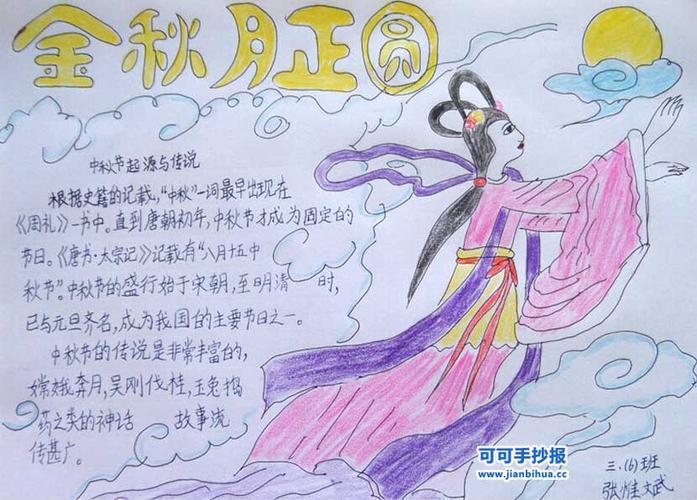 金秋月正圆
中秋节起源与传说
根据史籍的记载，“中秋”一词最早出现在
《周礼》一书中。直到唐朝初年，中秋节才成为固定的
节日。《唐书·太宗记》记载有“八月十五中
秋节”。中秋节的盛行始于宋朝，至明清 时，
已与元旦齐名，成为我国的主要节日之一。
中秋节的传说是非常丰富的，
嫦娥奔月，吴刚伐桂，玉兔捣
药之类的神话 故事流
传甚广。
可可手抄报
www.jianbihua.cc
三.(6)班
张惟文武